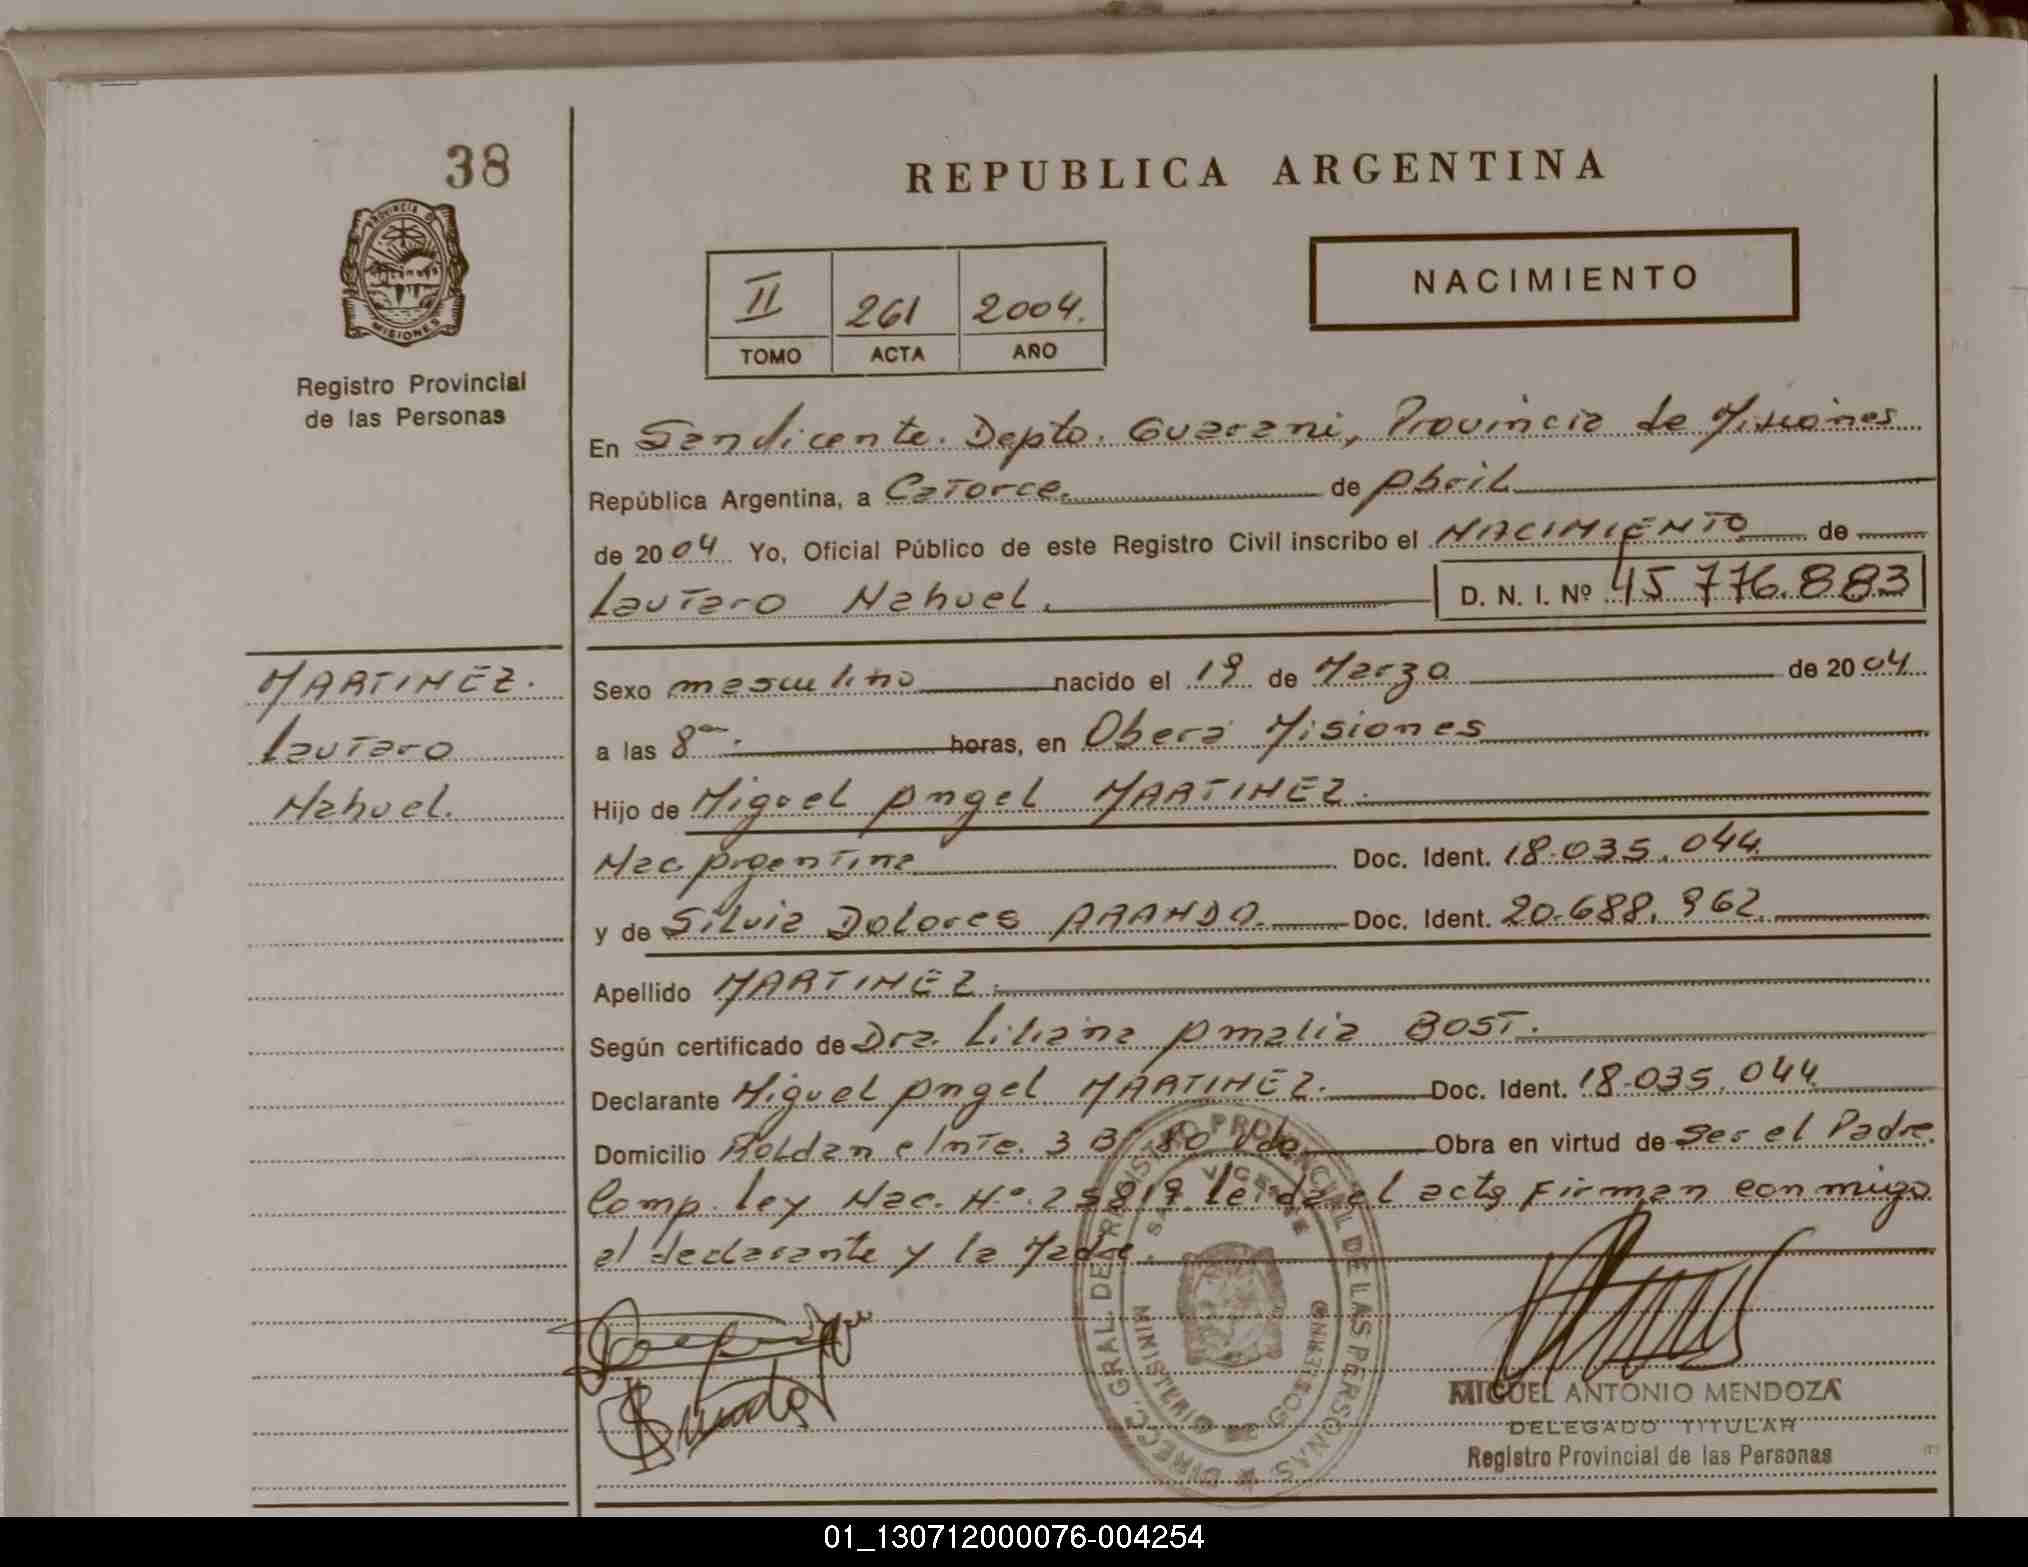 38
REPUBLICA ARGENTINA
PROVINCIA DE
MISIONES
Registro Provincial
de las Personas
II 261 2004.
TOMO ACTA AÑO
NACIMIENTO
En Sanvicente. Depto. Guarani, Provincia de Misiones
República Argentina, a Catorce. de Abril
de 2004 Yo, Oficial Público de este Registro Civil inscribo el NACIMIENTO de
Lautaro Nahuel. D. N. I. Nº 45.776.883
MARTINEZ.
Lautaro
Nahuel.
Sexo masculino nacido el 19 de Marzo de 2004
a las 8 horas, en Obera Misiones
Hijo de Miguel Angel MARTINEZ.
Nac. Argentina Doc. Ident. 18.035.044
y de Silvia Dolores ARANDA. Doc. Ident. 20.688.962
Apellido MARTINEZ.
Según certificado de Dra. Liliana Amalia BOST.
Declarante Miguel Angel MARTINEZ. Doc. Ident. 18.035.044
Domicilio Roldan e Inte. 3 B° 80 Vdas Obra en virtud de ser el Padre.
Comp. ley Nac. N° 25819 leida el acta Firman conmigo
el declarante y la Madre.
DIRECC. GRAL DE REGISTRO PROVINCIAL DE LAS PERSONAS
SAN VICENTE
MINISTERIO DE GOBIERNO
MIGUEL ANTONIO MENDOZA
DELEGADO TITULAR
Registro Provincial de las Personas
01_130712000076-004254